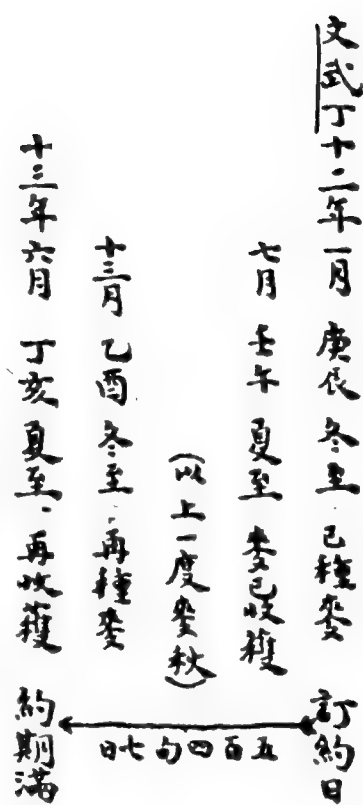 文武丁十二年一月　庚辰　冬至．已種麥　訂約日
七月　壬午　夏至　麥已收穫
（以上一度麥秋）
十三月　乙酉　冬至．再種麥
十三年六月　丁亥　夏至．再收穫　約期滿
五百四旬七日